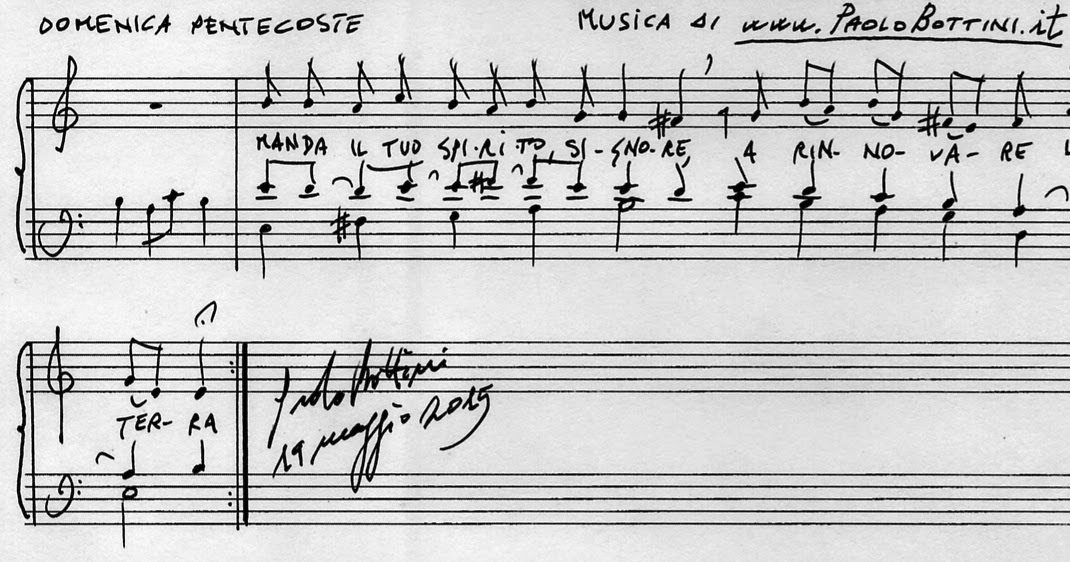 DOMENICA PENTECOSTE MUSICA DI www.PAOLOBOTTINI.it
MANDA IL TUO SPI-RI-TO, SI-GNO-RE, A RIN-NO-VA-RE L
TER-RA
Paolo Bottini
19 maggio 2015